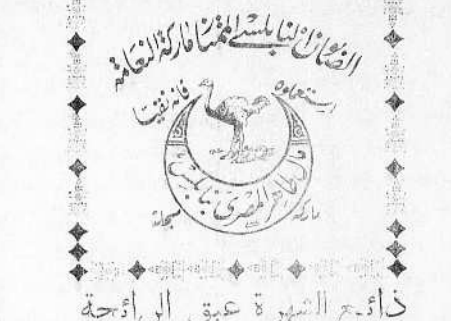 الصابون النابلسي الممتاز ماركة النعامة
استعملوه فانه نقيا
طاهر المصري نابلس
ماركة مسجلة
ذائع الشهرة عبق الرائحة